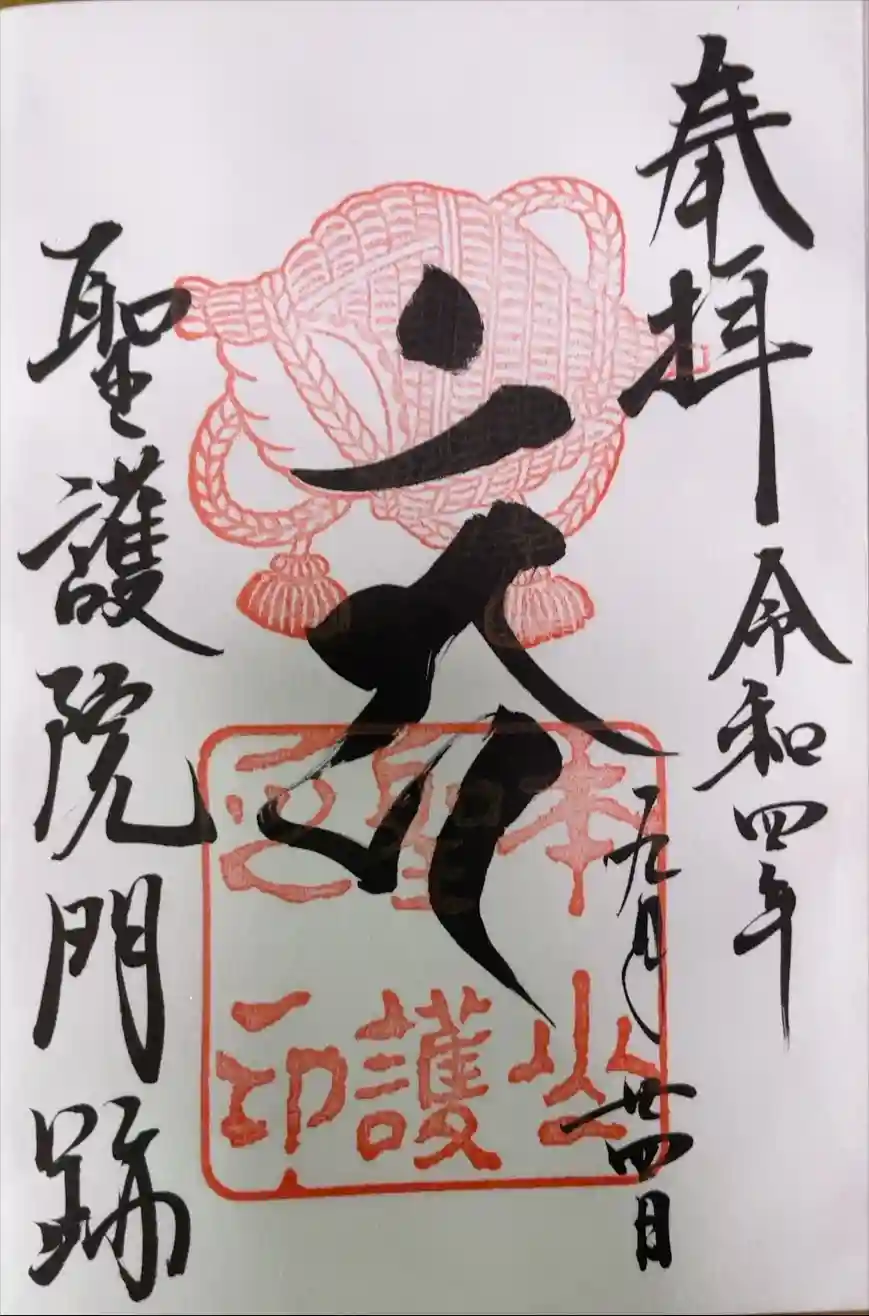 奉拝
令和四年
九月廿四日
本山
聖護
印
聖護院門跡